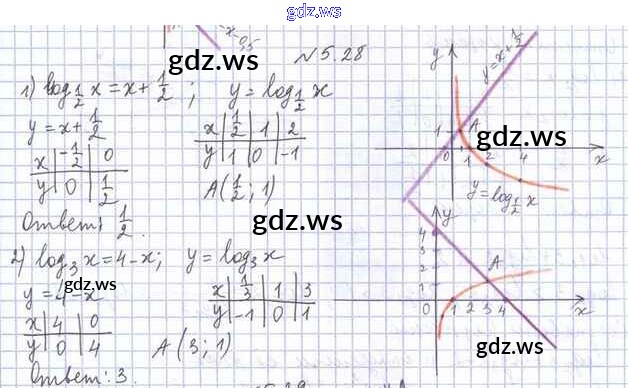 gdz.ws
-x-0,5
N 5.28
1) log_{1/2} x = x + 1/2 ; y = log_{1/2} x
y = x + 1/2
x | -1/2 | 0
y | 0 | 1/2
x | 1/2 | 1 | 2
y | 1 | 0 | -1
A(1/2; 1)
Ответ: 1/2.
y
y = x + 1/2
1
A
0 1 2 4 x
y = log_{1/2} x
gdz.ws
gdz.ws
gdz.ws
2) log_3 x = 4 - x; y = log_3 x
y = 4 - x
gdz.ws
x | 4 | 0
y | 0 | 4
x | 1/3 | 1 | 3
y | -1 | 0 | 1
A (3; 1)
Ответ: 3.
y
4
3
2
1
A
0 1 2 3 4 x
gdz.ws
gdz.ws